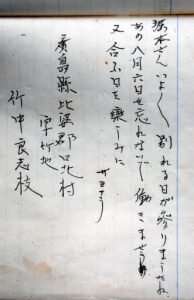 坂本さん いよ〱 別れる日が参りましたね
あの八月六日を忘れないで 働きませうね
又会ふ日を楽しみに
さようなら
廣島縣比婆郡口北村
字竹地
竹中良志枝